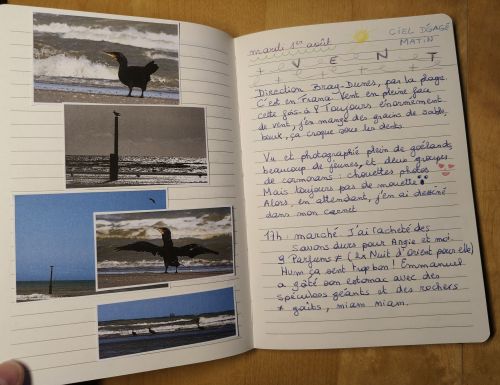 mardi 1er août
CIEL DÉGAGÉ
MATIN
V E N T
Direction Bray-Dunes, par la plage.
C'est en France. Vent en pleine face
cette fois-ci ! Toujours énormément
de vent, j'en mange des grains de sable,
beurk, ça croque sous les dents.
Vu et photographié plein de goélands,
beaucoup de jeunes, et deux groupes
de cormorans : chouettes photos
Mais toujours pas de mouette !
Alors, en attendant, j'en ai dessiné
dans mon carnet
17h : marché. J'ai racheté des
savons durs pour Angie et moi
9 Parfums ≠ (2x Nuit d'Orient pour elle)
Hum ça sent trop bon ! Emmanuel
a gâté son estomac avec des
spéculoos géants et des rochers
≠ goûts, miam miam.